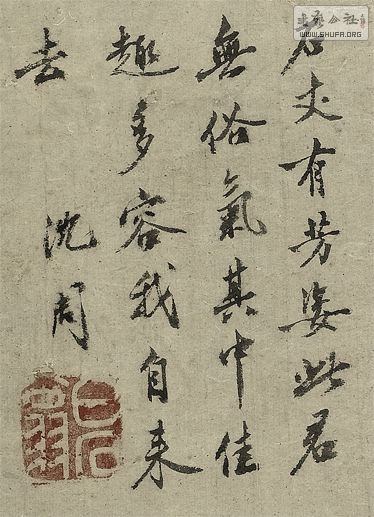 石丈有芳姿此君
無俗氣其中佳
趣多容我自来
去
沈周
白石翁
公社
WWW.SHUFA.ORG